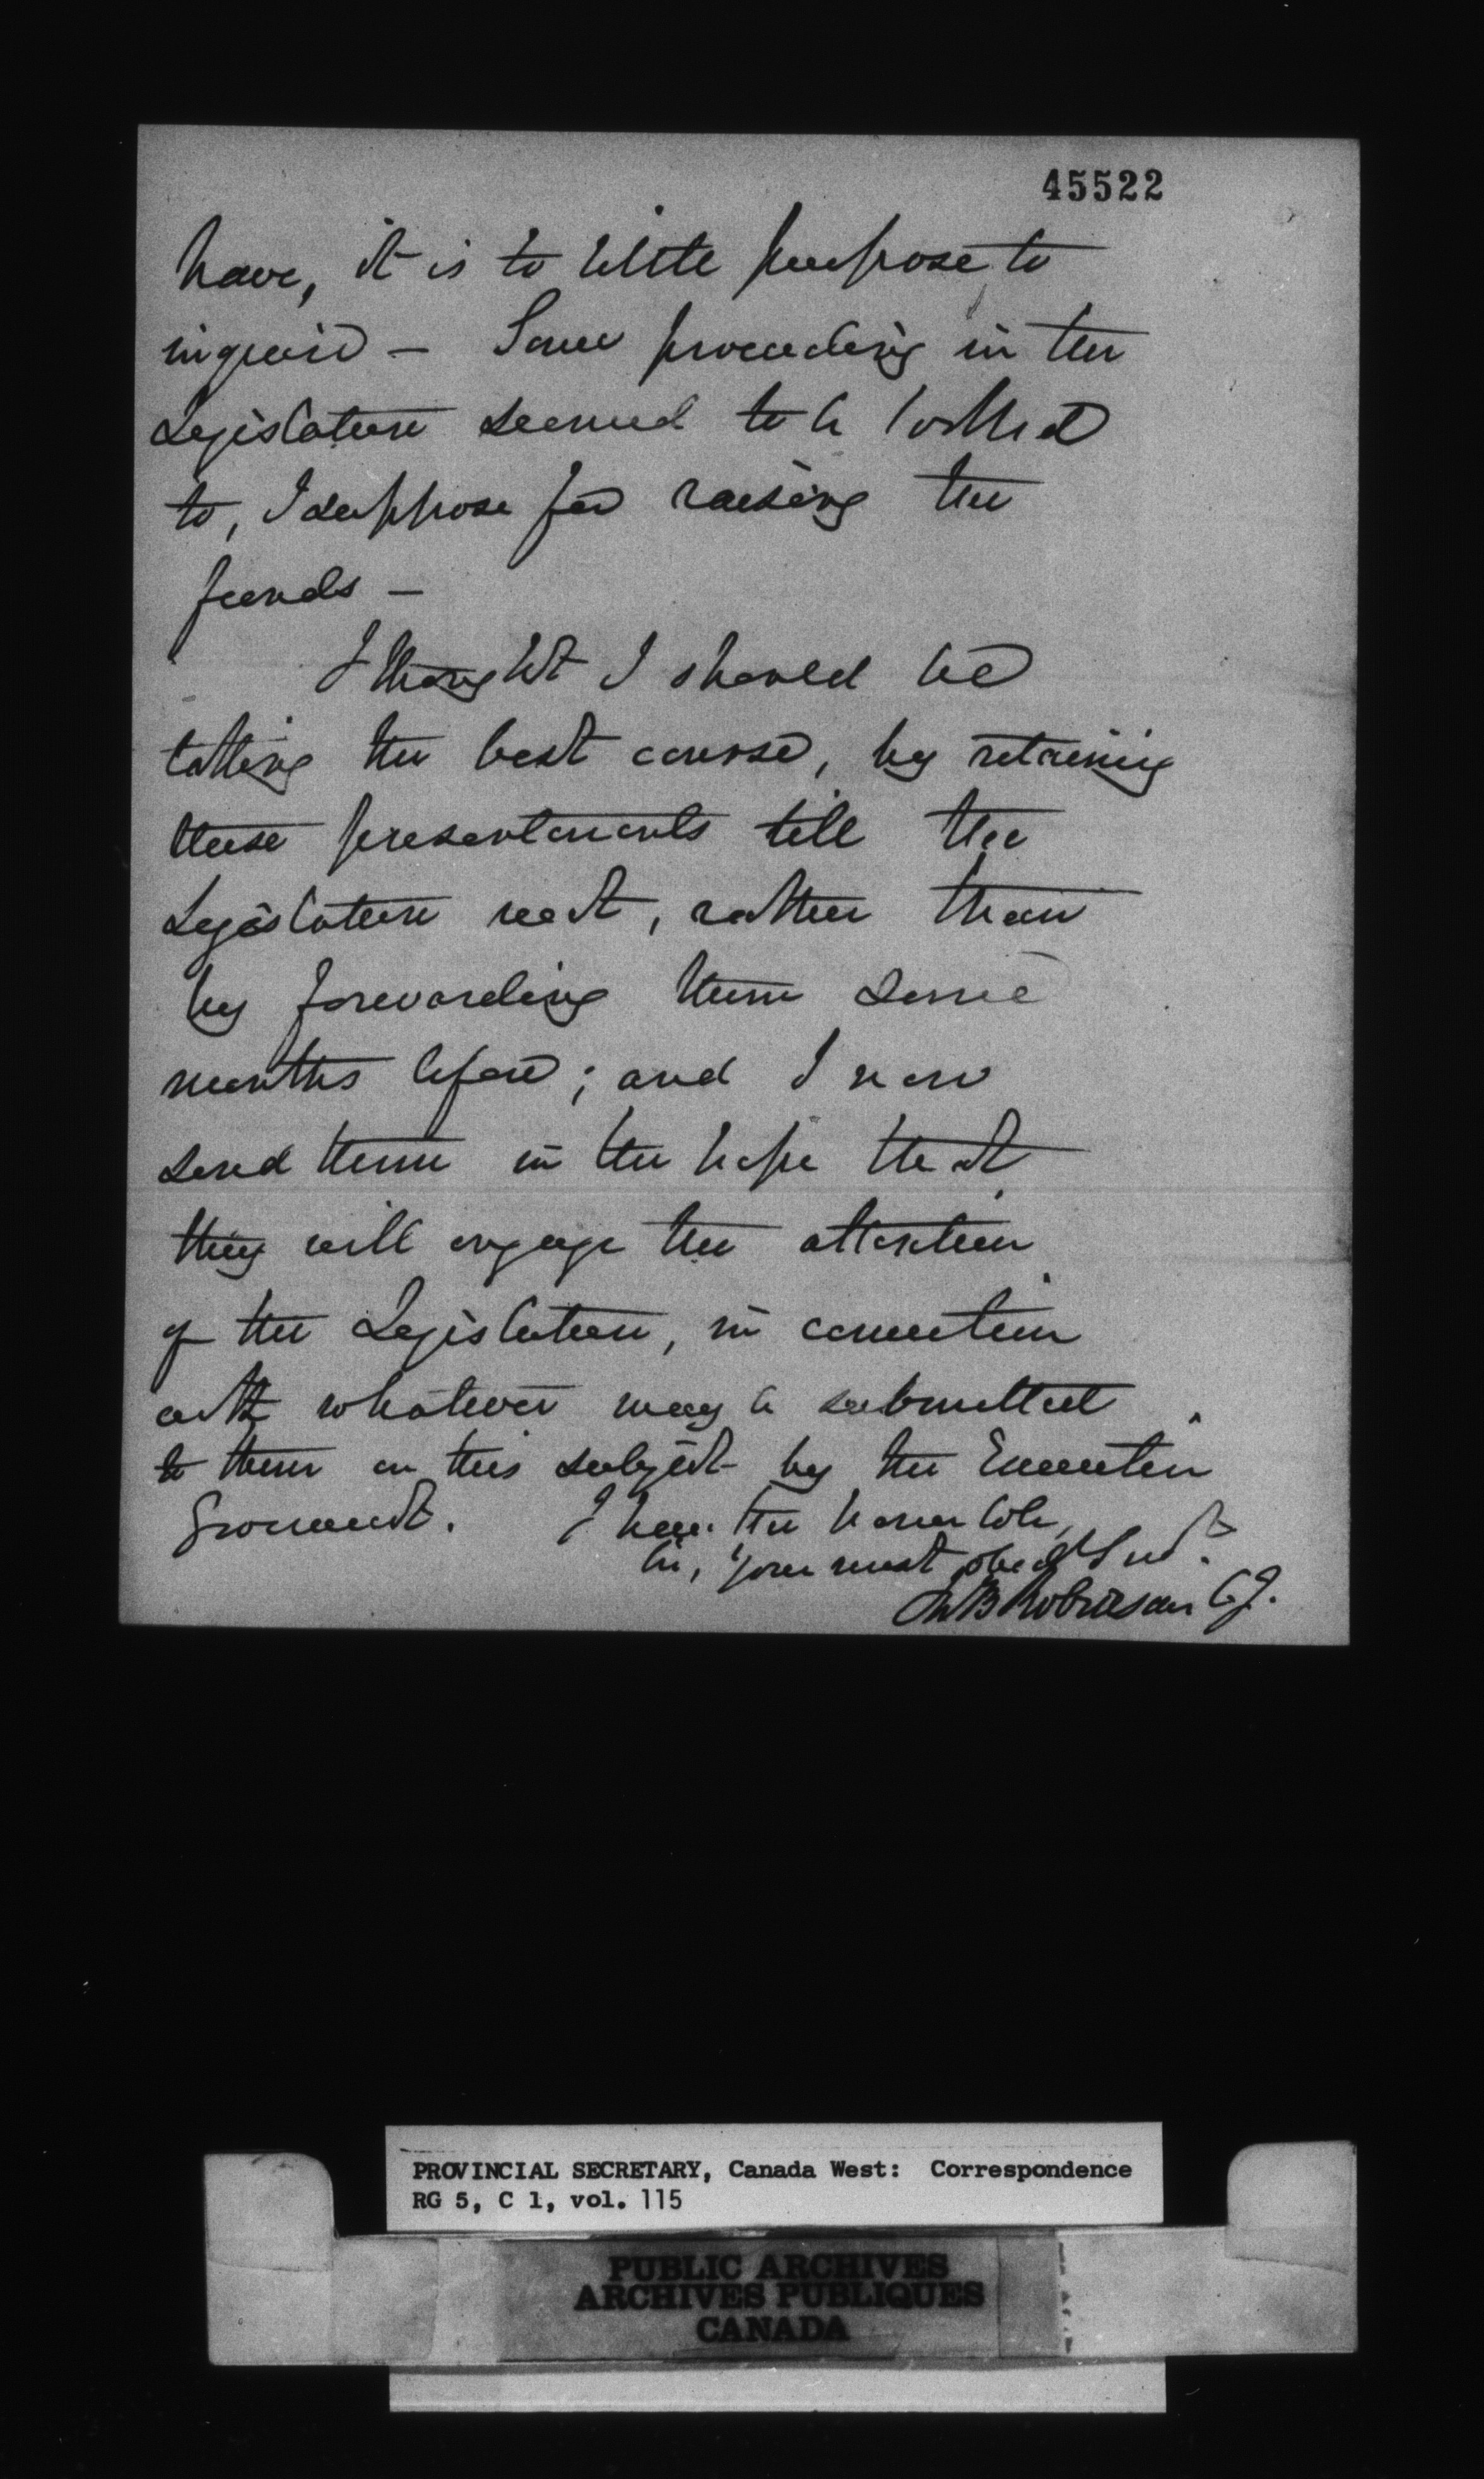 45522
have, it is to little purpose to
inquire - Some proceeding in the
Legislature seemed to be looked
to, I suppose for raising the
funds -
I thought I should be
taking the best course, by retaining
these presentments till the
Legislature met, rather than
by forwarding them some
months before; and I now
send them in the hope that
they will engage the attention
of the Legislature, in connection
with whatever may be submitted
to them on this subject by the Executive
Government. I have the honor to be,
Sir, Your most obedt Servt
Jno B Robinson C.J.
PROVINCIAL SECRETARY, Canada West: Correspondence
RG 5, C 1, vol. 115
PUBLIC ARCHIVES
ARCHIVES PUBLIQUES
CANADA